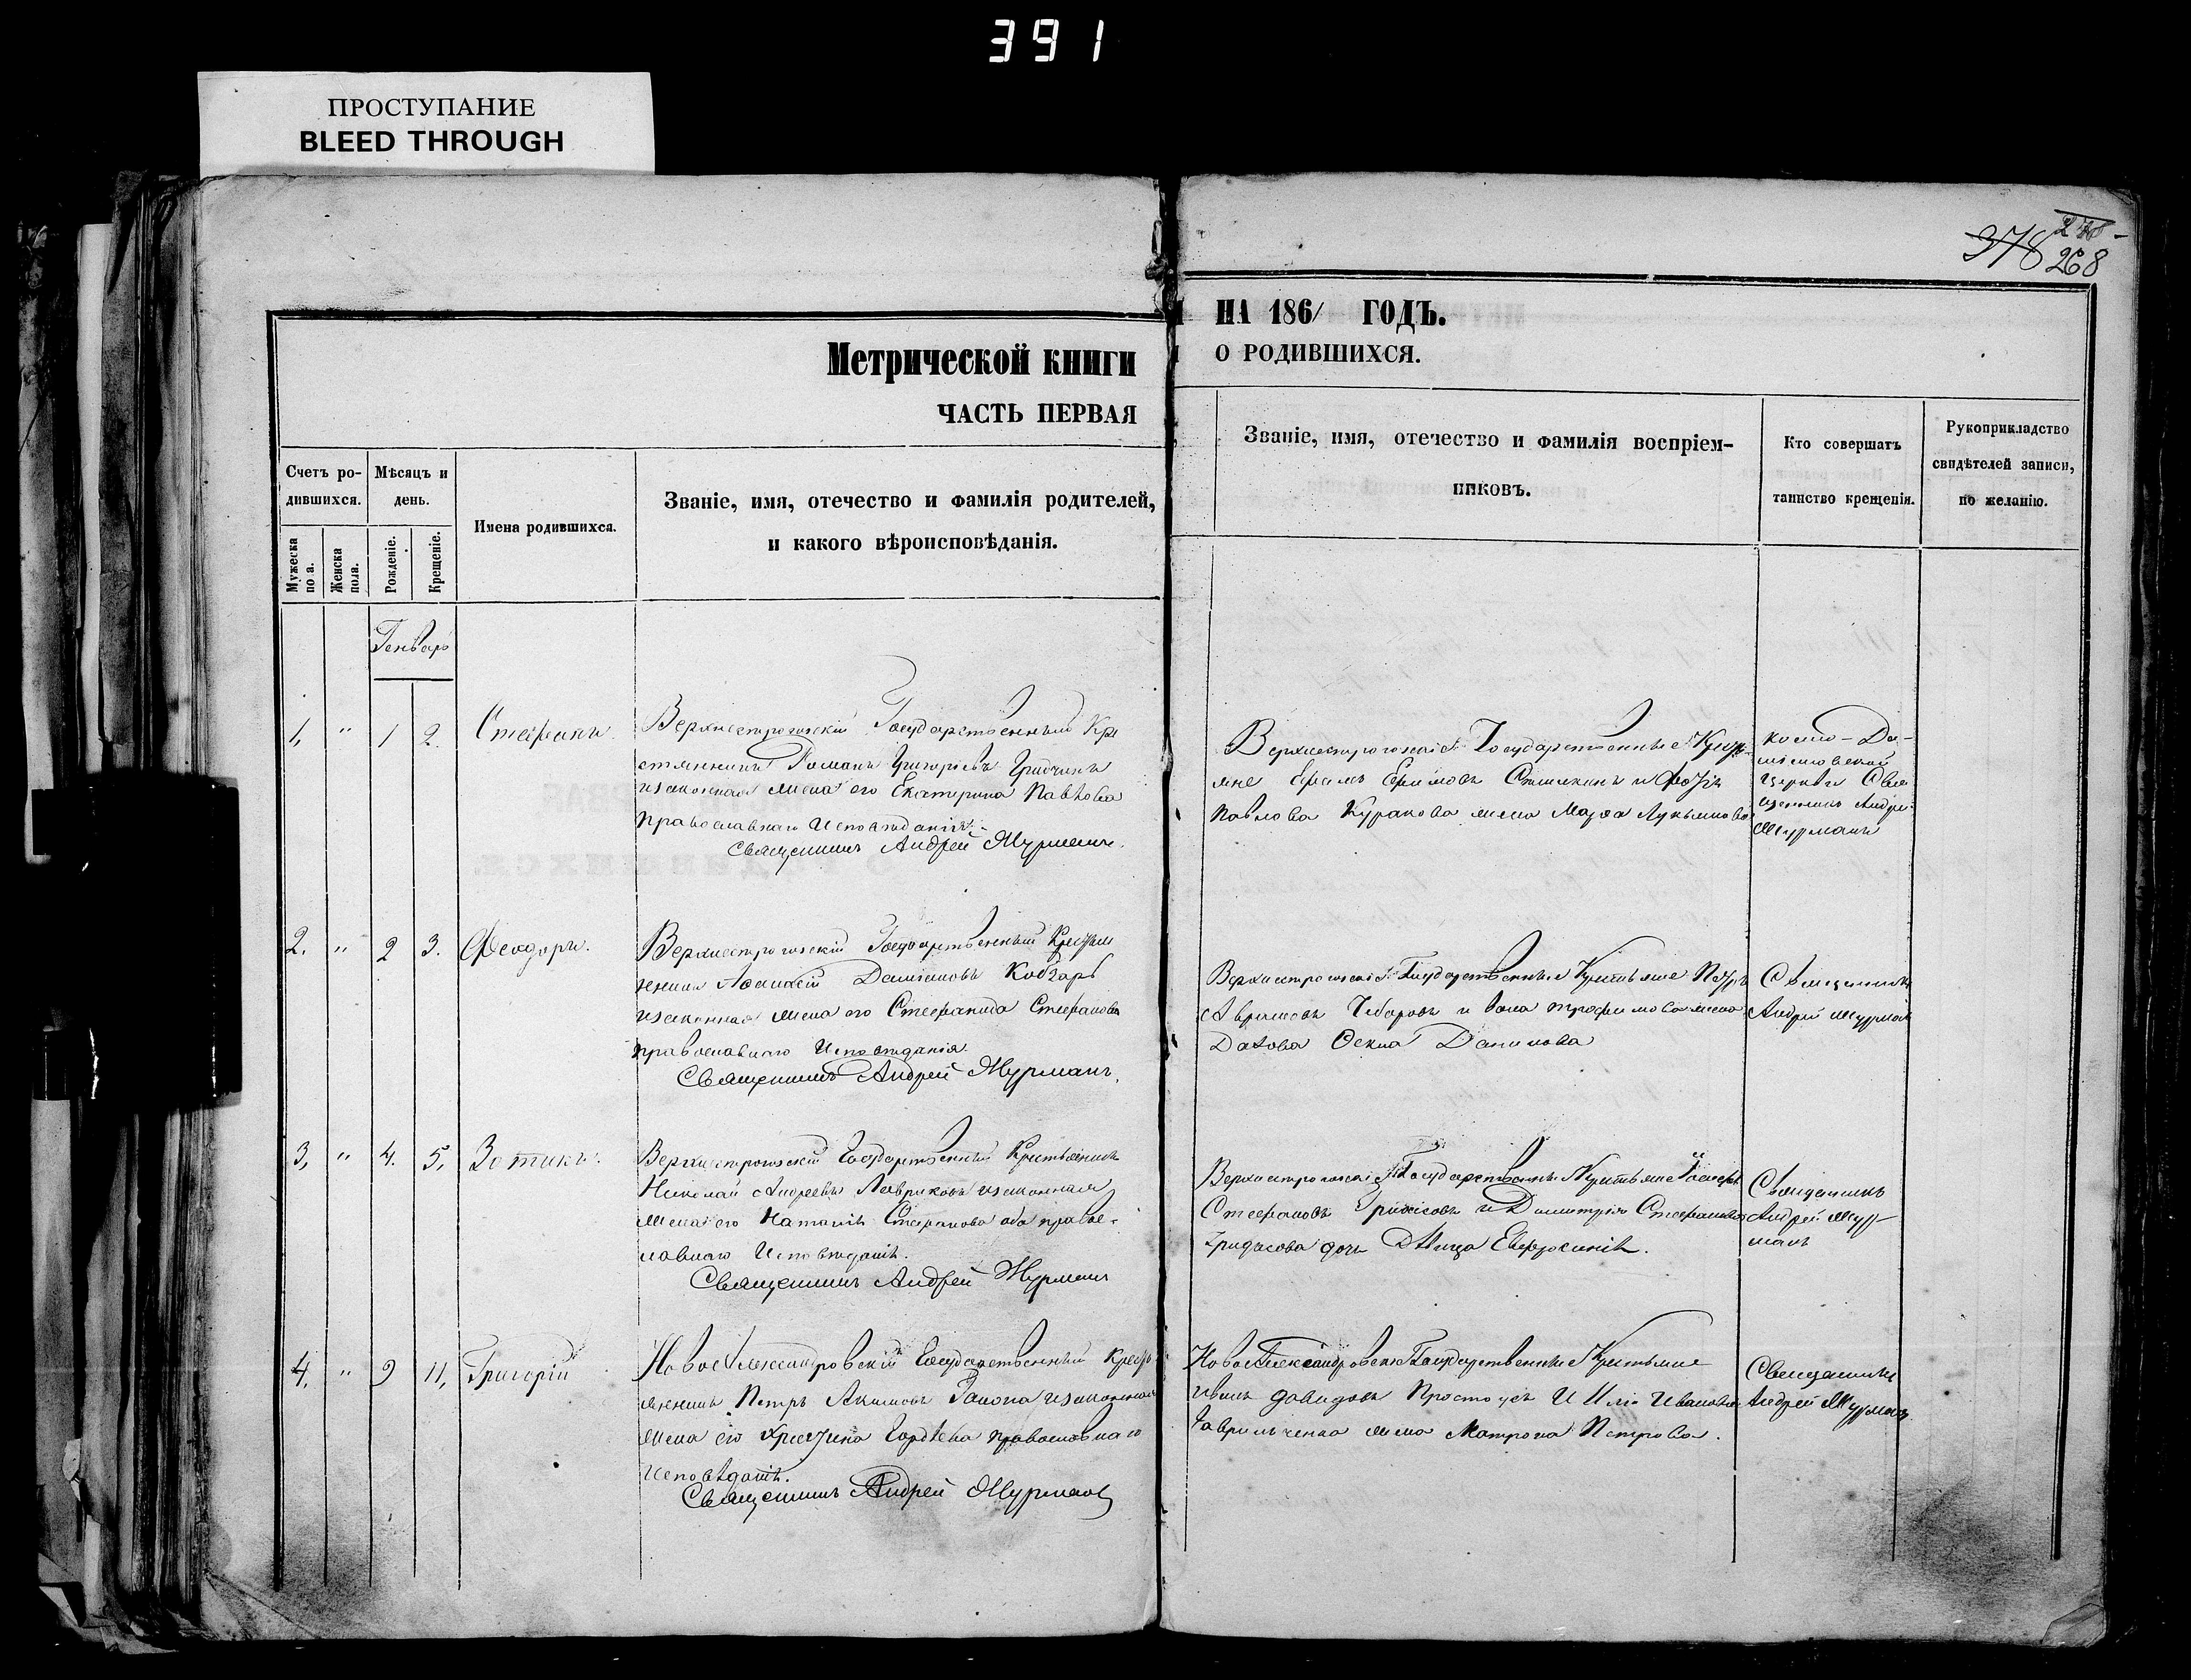 391
ПРОСТУПАНИЕ
BLEED THROUGH
378
268
Метрической книги
НА 1861 ГОДЪ.
ЧАСТЬ ПЕРВАЯ
О РОДИВШИХСЯ.
Счетъ ро-
дившихся.
Мѣсяцъ и
день.
Мужеска
пола.
Женска
пола.
Рожденіе.
Крещеніе.
Имена родившихся.
Званіе, имя, отечество и фамилія родителей,
и какого вѣроисповѣданія.
Званіе, имя, отечество и фамилія воспріем-
никовъ.
Кто совершалъ
таинство крещенія.
Рукоприкладство
свидѣтелей записи,
по желанію.
Генварь
1, " 1 2. Стефанъ.
Верхнестрогозскій Государственный Кре
стьянинъ Романъ Григорьевъ
изаконная жена его Екатерина Павлова
православнаго Исповѣданія.
Священникъ Андрей Мурманъ.
Верхнестрогозскіе Государственные Крестья-
не Ефимовъ
Павлова Куракова жена Марѳа Лукьянова
Космо-Да-
міановской
церкви Свя
щенникъ Андрей
Мурманъ
2. " 2 3. Ѳеодоръ.
Верхнестрогозскій Государственный Крестья
нинъ Даміановъ Кобзарь
изаконная жена его Стефанида Стефанова
православнаго Исповѣданія.
Священникъ Андрей Мурманъ.
Верхнестрогозскіе Государственные Крестьяне Петръ
и жена
Данилова
Священникъ
Андрей Мурман
3, " 4. 5, Зотикъ.
Верхнестрогозскій Государственный Крестьянинъ
Николай Андреевъ Лавриковъ изаконная
жена его Наталія Стефанова оба право-
славнаго Исповѣданія.
Священникъ Андрей Мурман
Верхнестрогозскіе Государственные Крестьяне
Стефановъ и Димитрія Стефанова
дочь Дѣвица Евфросинія.
Священникъ
Андрей Мур-
манъ
4. " 9 11, Григорій
Новоалександровскій Государственный Кресть
янинъ Петръ Акимовъ изаконная
жена его Христина Гордѣева православнаго
Исповѣданія.
Священникъ Андрей Мурман
Новоалександровскіе Государственные Крестьяне
Иванъ Давидовъ и Иліи Иванова
Гаврильченка жена Матрона Петрова.
Священникъ
Андрей Мурман